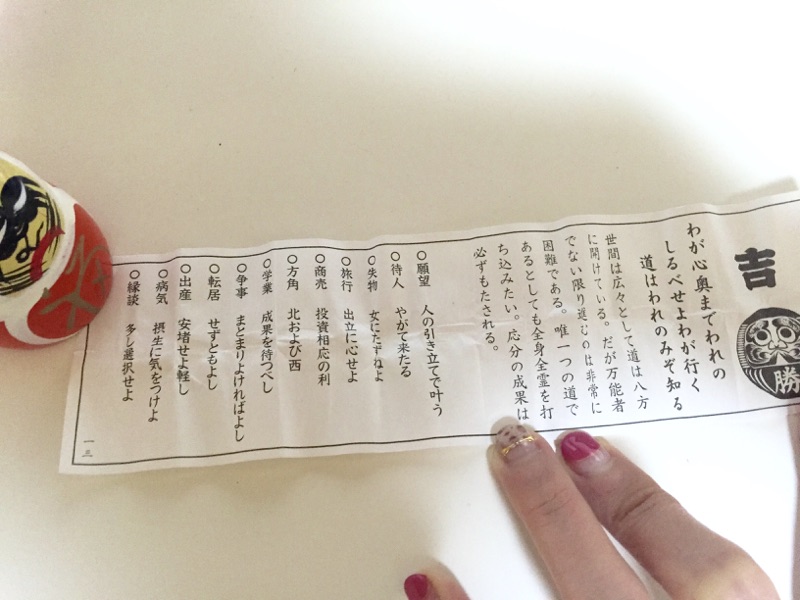 吉
勝
わが心奥までわれの
しるべせよわが行く
道はわれのみぞ知る
世間は広々として道は八方
に開けている。だが万能者
でない限り選むのは非常に
困難である。唯一つの道で
あるとしても全身全霊を打
ち込みたい。応分の成果は
必ずもたされる。
○願望 人の引き立てで叶う
○待人 やがて来たる
○失物 女にたずねよ
○旅行 出立に心せよ
○商売 投資相応の利
○方角 北および西
○学業 成果を待つべし
○争事 まとまりよければよし
○転居 せずともよし
○出産 安堵せよ軽し
○病気 摂生に気をつけよ
○縁談 多し選択せよ
一三